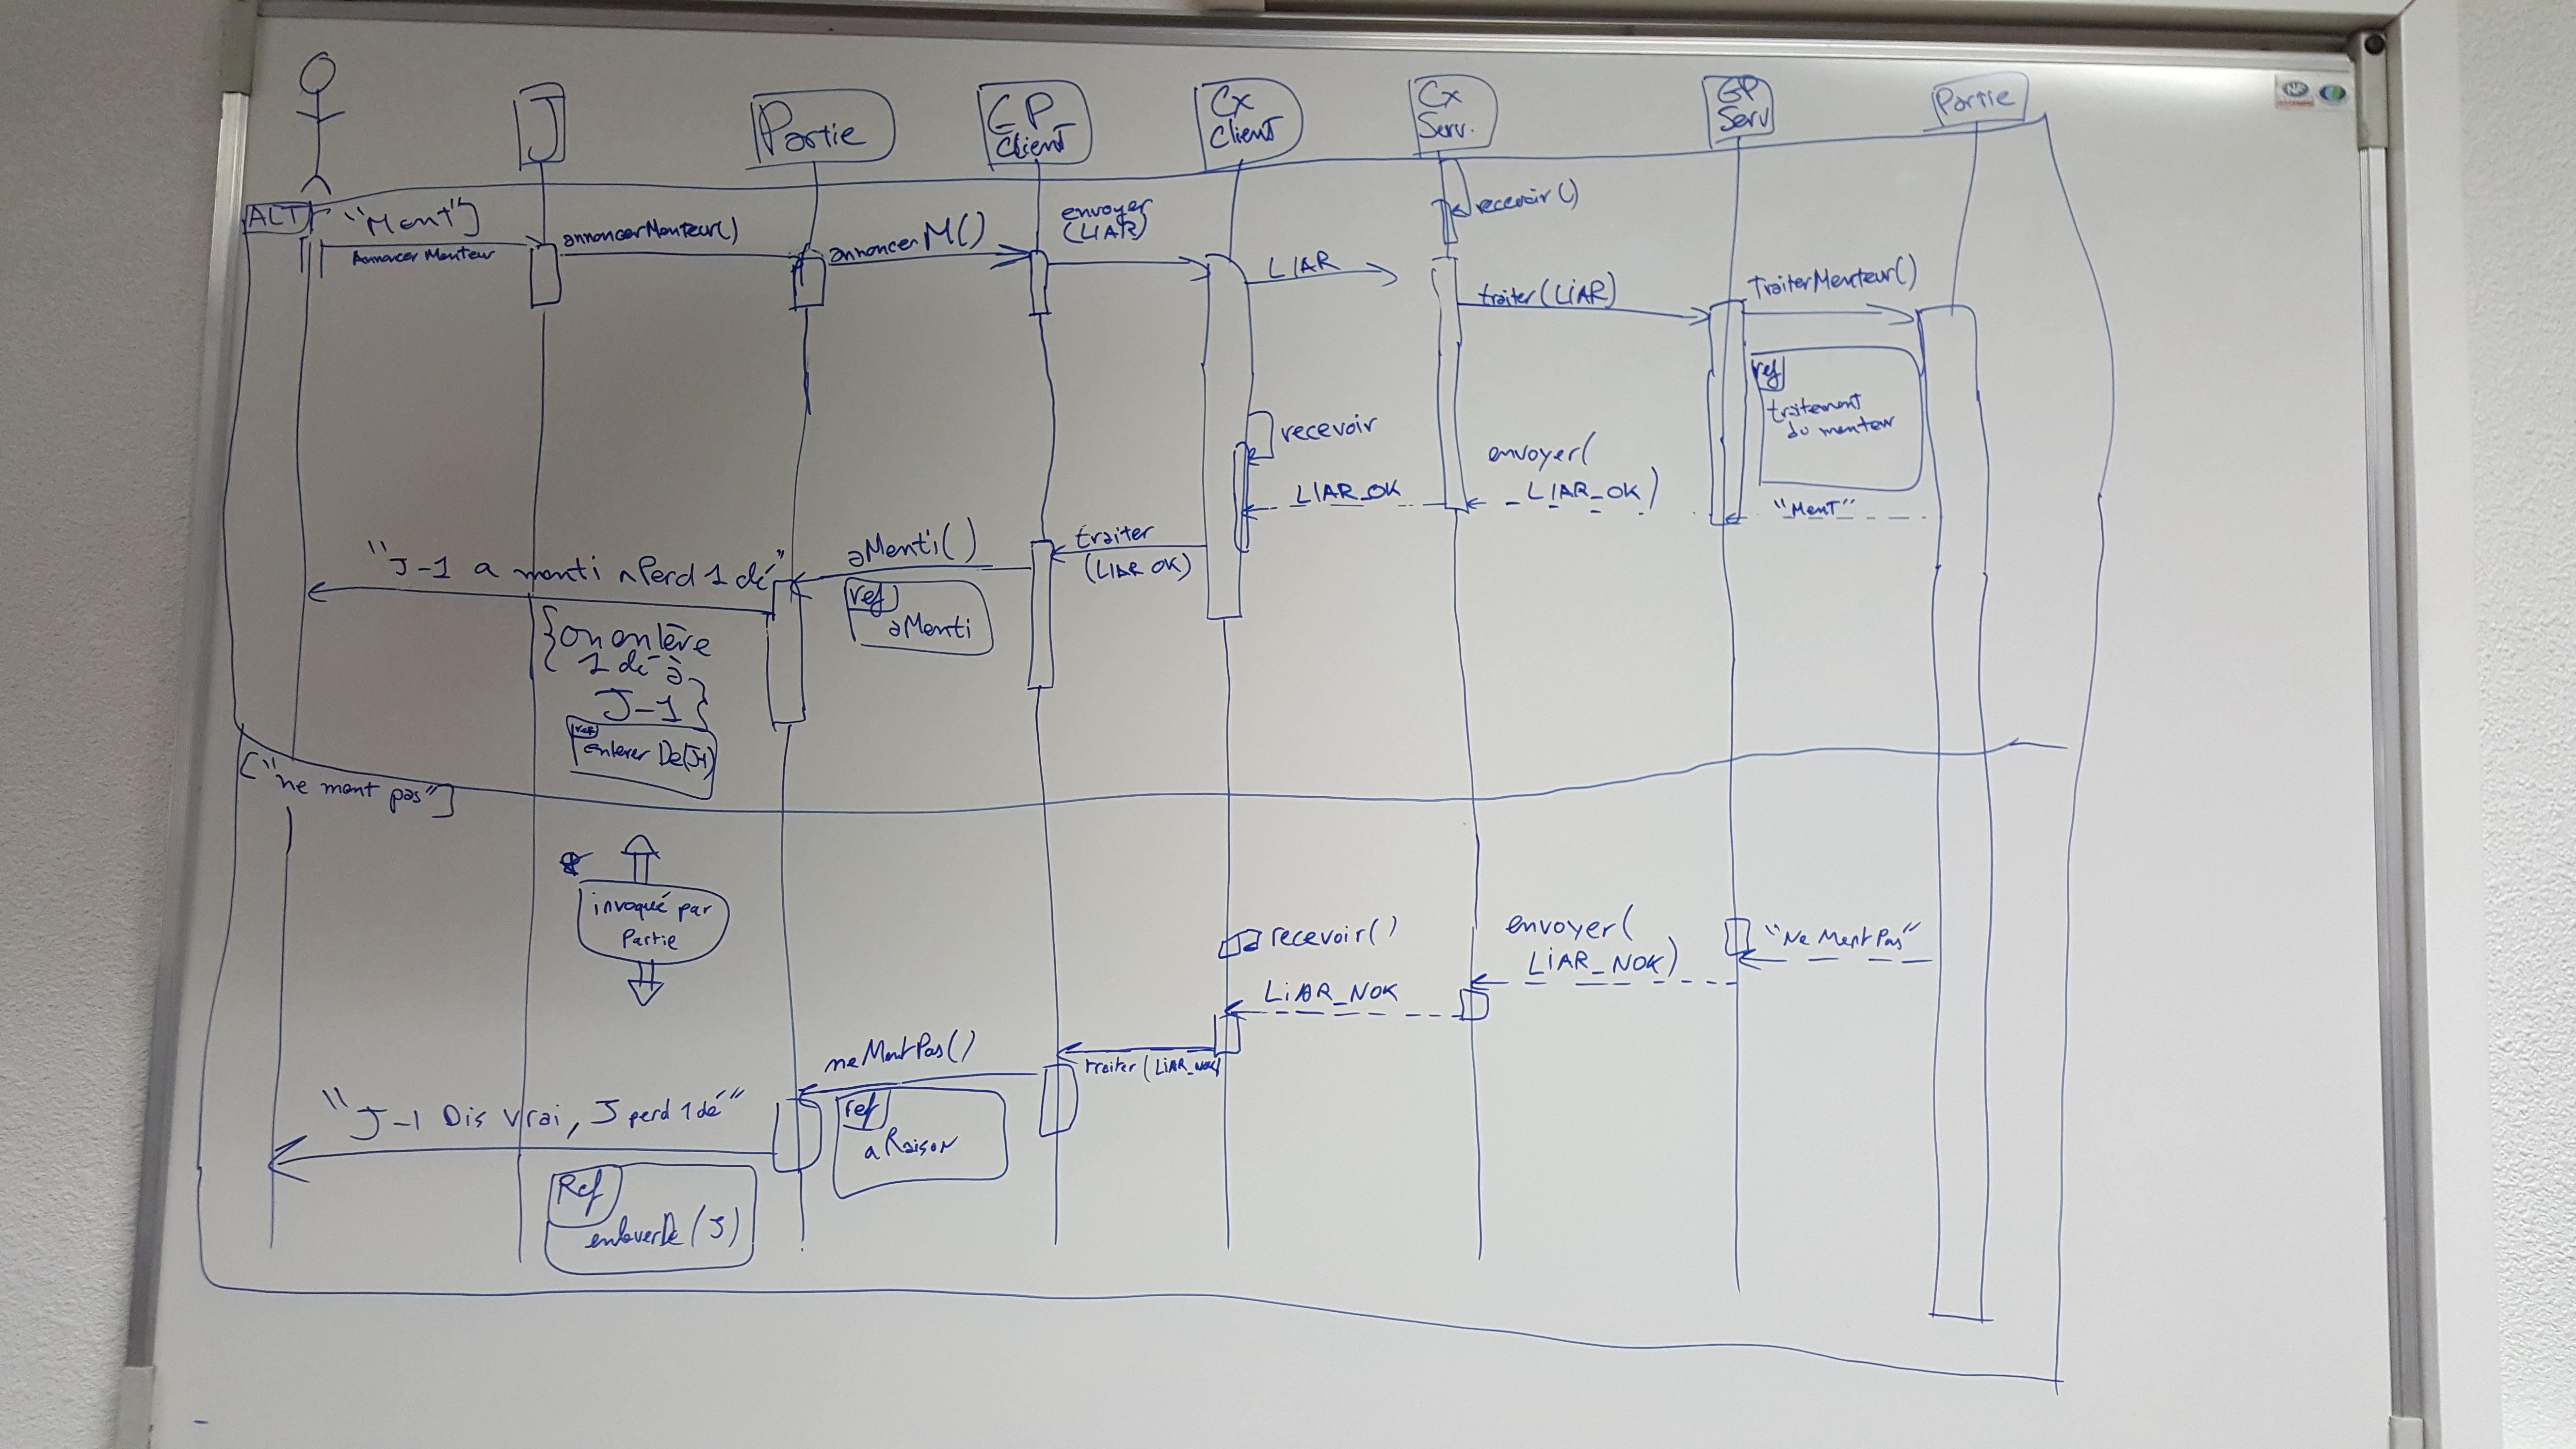 J
Partie
GP_
Client
Cx
Client
Cx
Serv.
GP
Serv
Partie
ALT
["Ment"]
Annoncer Menteur
annoncerMenteur()
annoncerM()
envoyer
(LIAR)
LIAR
recevoir()
traiter(LIAR)
TraiterMenteur()
ref
traitement
du menteur
recevoir
envoyer(
LIAR_OK)
LIAR_OK
"MenT"
traiter
(LIAR OK)
aMenti()
ref
aMenti
"J-1 a menti Perd 1 dé"
{on enlève
1 dé à
J-1}
ref
enlever De(J-1)
["ne ment pas"]
invoqué par
Partie
recevoir()
envoyer(
LIAR_NOK)
"Ne Ment Pas"
LIAR_NOK
traiter(LIAR_NOK)
neMentPas()
ref
a Raison
"J-1 Dis vrai, J perd 1 dé"
Ref
enleverDe(J)